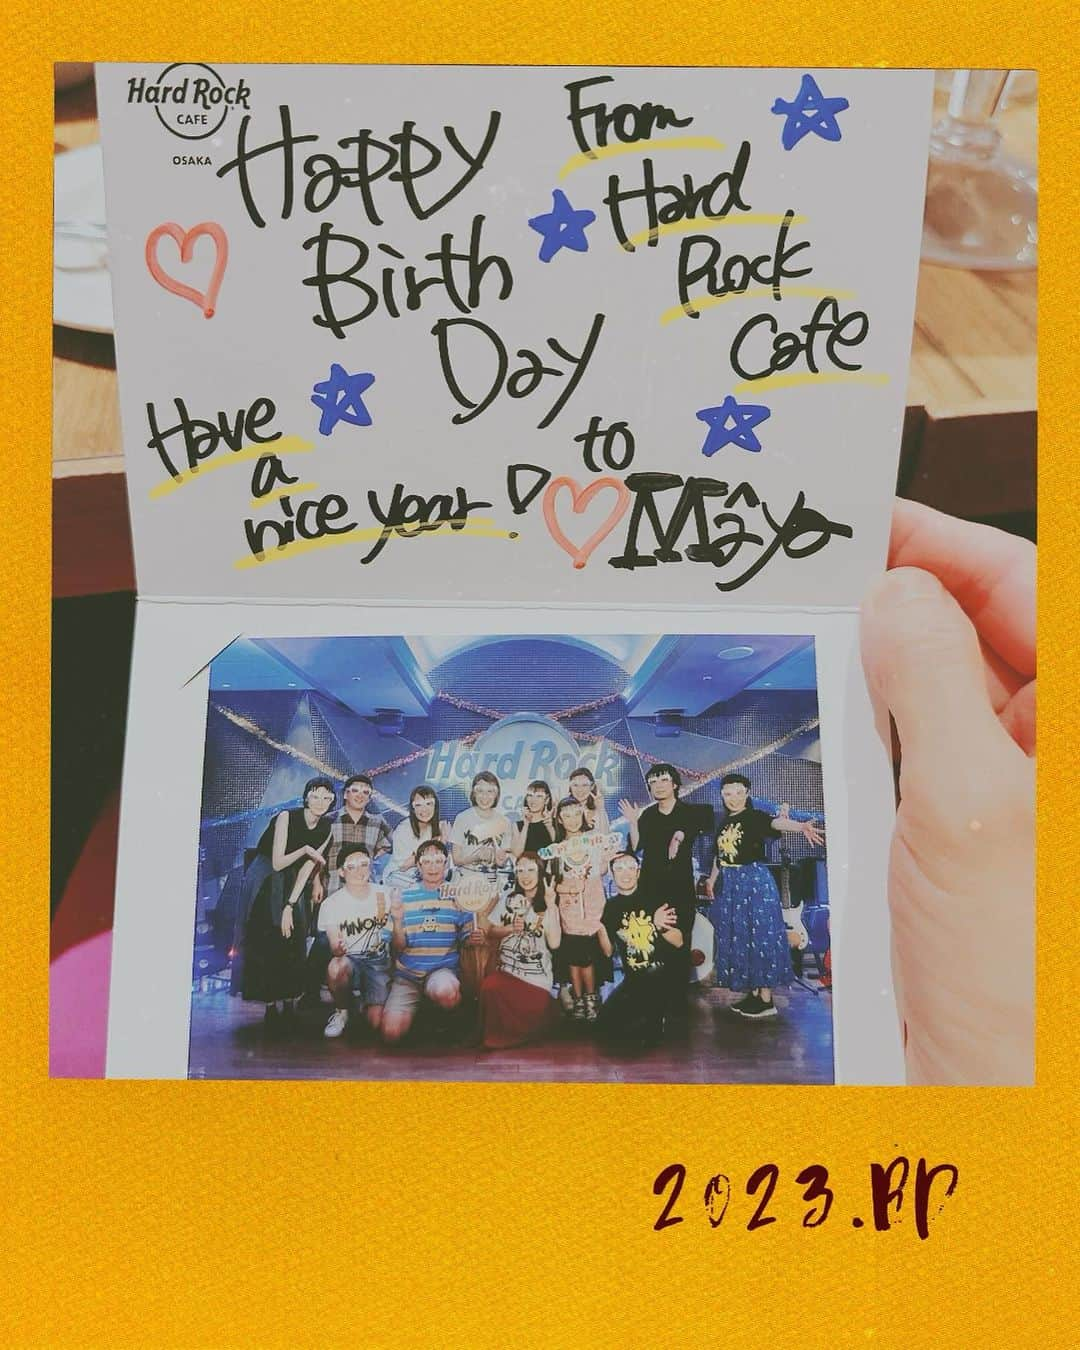 Hard Rock
CAFE
OSAKA
Happy
Birth
Day
From
Hard
Rock
Cafe
Have
a
nice year!
to
Mâya
Hard Rock
CA
MINIONS
Hard Rock
CAFE
2023.BD